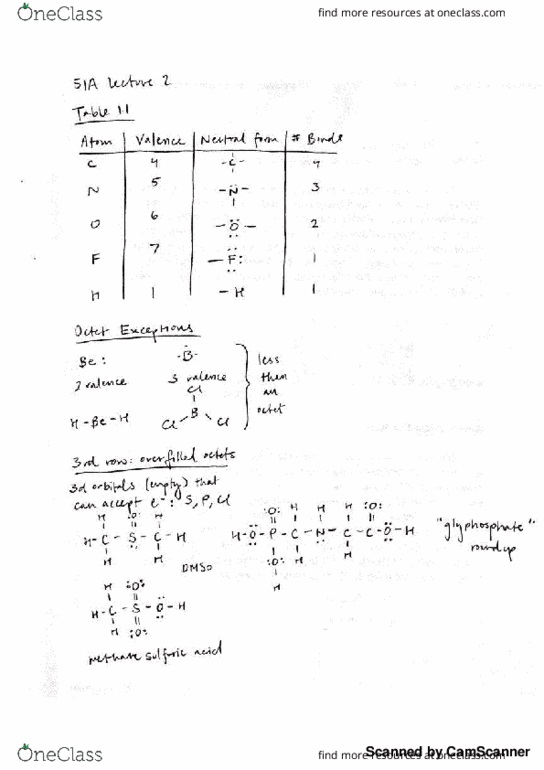 OneClass find more resources at oneclass.com
51A Lecture 2
Table 1.1
Atom Valence Neutral form # Bonds
C 4 -C- 4
N 5 -N- 3
O 6 -O- 2
F 7 -F: 1
H 1 -H 1
Octet Exceptions
Be: ·B·
2 valence 3 valence
less
than
an
octet
Cl
H-Be-H B
Cl Cl
3rd row: overfilled octets
3d orbitals (empty) that
can accept e⁻: S, P, Cl
H :O: H :O: H H H :O:
H-C-S-C-H H-O-P-C-N-C-C-O-H
"glyphosphate"
roundup
H H :O: H H
DMSO
H
H :O:
H-C-S-O-H
H :O:
methane sulfonic acid
OneClass find more resources at oneclass.com
Scanned by CamScanner